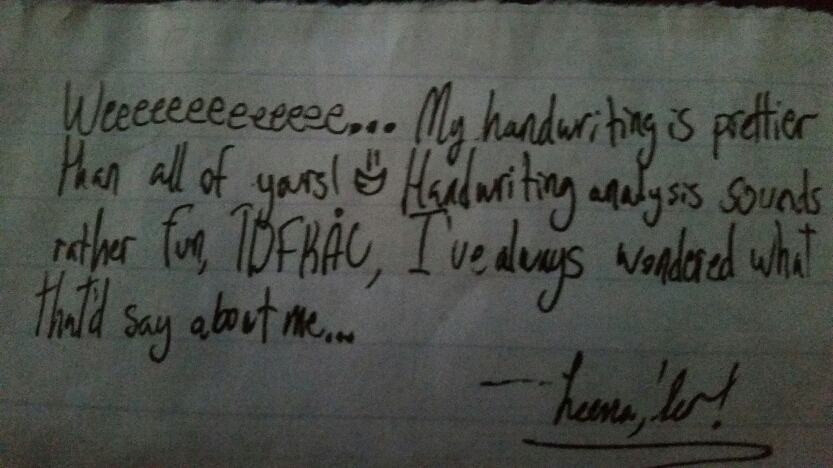 Weeeeeeeeeeeeee... My handwriting is prettier
than all of yours! Handwriting analysis sounds
rather fun, TDFKÅC, I've always wondered what
that'd say about me...